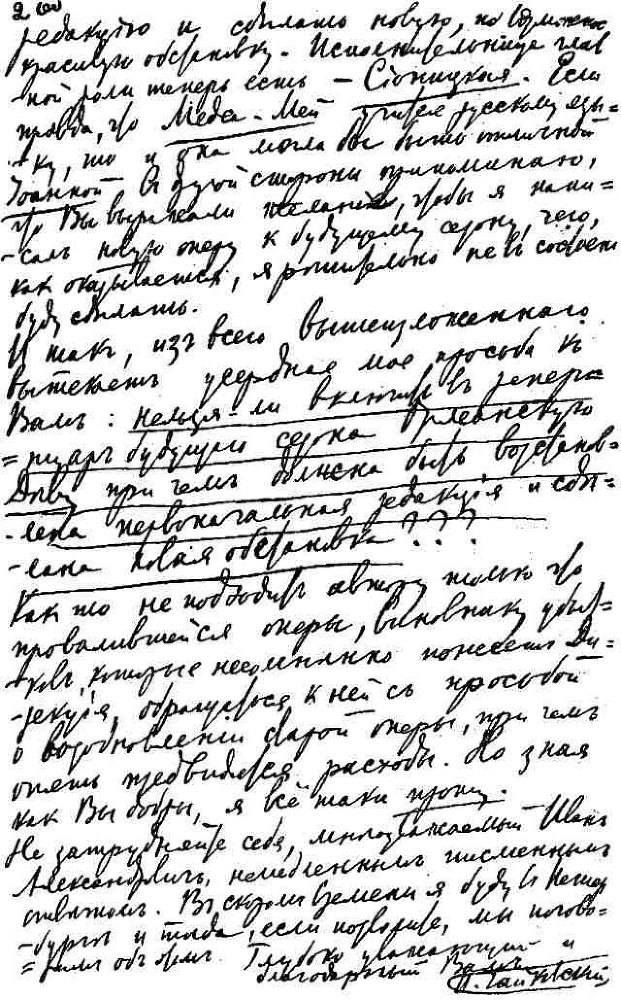 редакцію и сдѣлать новую, но возможно
красивую обстановку. Исполнительница глав
-ной роли теперь есть – Сіоницкая. Если
правда, что Медеа-Мей учится русскому язы-
-ку, то и она могла бы быть отличной
Іоанной. Съ другой стороны припоминаю,
что Вы выражали желаніе, чтобы я напи=
-салъ новую оперу къ будущему сезону, чего,
какъ оказывается, я рѣшительно не въ состоян
буду сдѣлать.
И такъ, изъ всего вышеизложеннаго
вытекаетъ усердная моя просьба къ
Вамъ: нельзя-ли включить въ репер=
=туаръ будущаго сезона Орлеанскую
Дѣву при чемъ должна быть возстанов-
-лена первоначальная редакція и сдѣ=
-лана новая обстановка???
Какъ то не подходитъ автору только что
провалившейся оперы, виновнику убыт-
-ковъ, которые несомнѣнно понесетъ Ди-
-рекція, обращаться къ ней съ просьбой
о возобновленіи старой оперы, при чемъ
опять предвидятся расходы. Но зная
какъ Вы добры, я всё таки прошу.
Не затрудняйте себя, многоуважаемый Иванъ
Александровичъ, немедленнымъ письменнымъ
отвѣтомъ. Въ скоромъ времени я буду въ Петер
-бургѣ и тогда, если позволите, мы погово-
=римъ объ этомъ. Глубоко уважающій и
благодарный Вамъ
П. Чайковскій